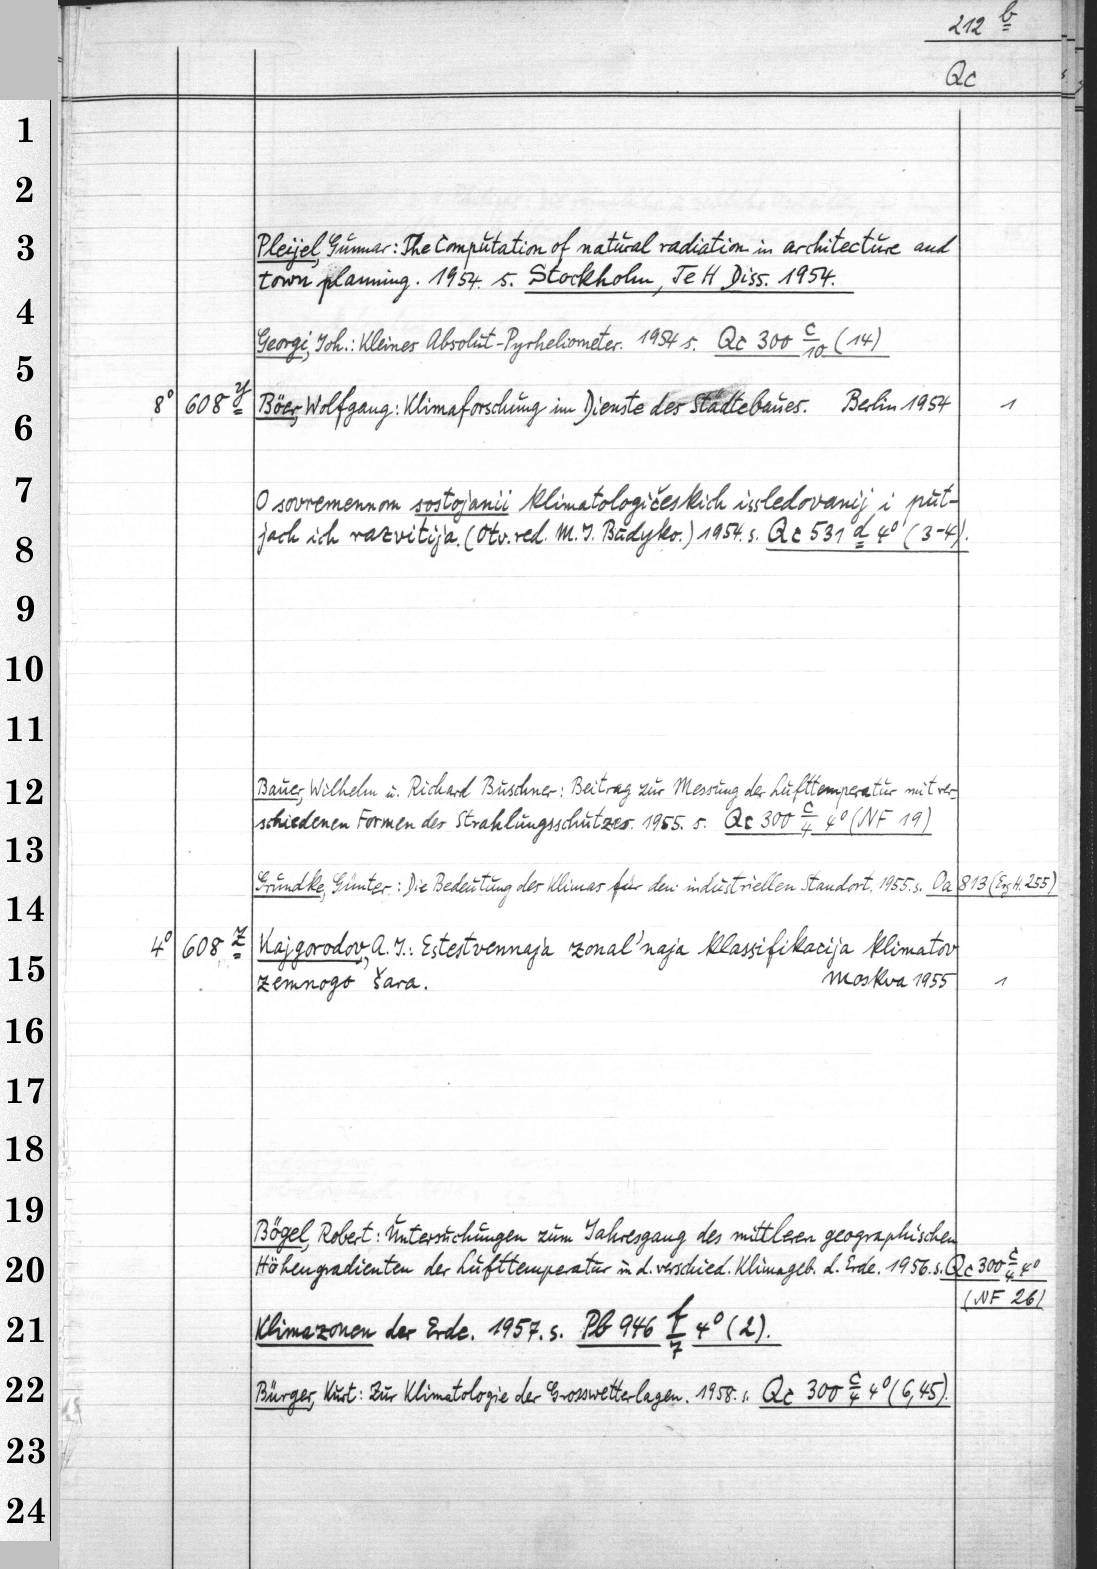 212 b
Qc
1
2
3
Pleijel, Gunnar: The Computation of natural radiation in architecture and
town planning. 1954. s. Stockholm, Te H Diss. 1954.
4
Georgi, Joh.: Kleines Absolut-Pyrheliometer. 1954 s. Qc 300 c/10 (14)
5
8° 608 y Böer, Wolfgang: Klimaforschung im Dienste des Städtebaues. Berlin 1954 1
6
7
O sovremennom sostojanii klimatologičeskich issledovanij i put-
jach ich razvitija. (Otv. red. M. I. Budyko.) 1954. s. Qc 531 d 4° (3-4).
8
9
10
11
12
Bauer, Wilhelm u. Richard Buschner: Beitrag zur Messung der Lufttemperatur mit ver-
schiedenen Formen des Strahlungsschutzes. 1955. s. Qc 300 c/4 4° (NF 19)
13
Grundke, Günter: Die Bedeutung des Klimas für den industriellen Standort. 1955. s. Oa 813 (Erg H. 255)
14
4° 608 z Kajgorodov, A. I.: Estestvennaja zonal'naja klassifikacija klimatov
15
zemnogo šara. Moskva 1955 1
16
17
18
19
Bögel, Robert: Untersuchungen zum Jahresgang des mittleren geographischen
20
Höhengradienten der Lufttemperatur in d. verschied. Klimageb. d. Erde. 1956. s. Qc 300 c/4 4°
(NF 26)
21
Klimazonen der Erde. 1957. s. Pb 946 f/7 4° (2).
22
Bürger, Kurt: Zur Klimatologie der Grosswetterlagen. 1958. s. Qc 300 c/4 4° (6,45).
23
24